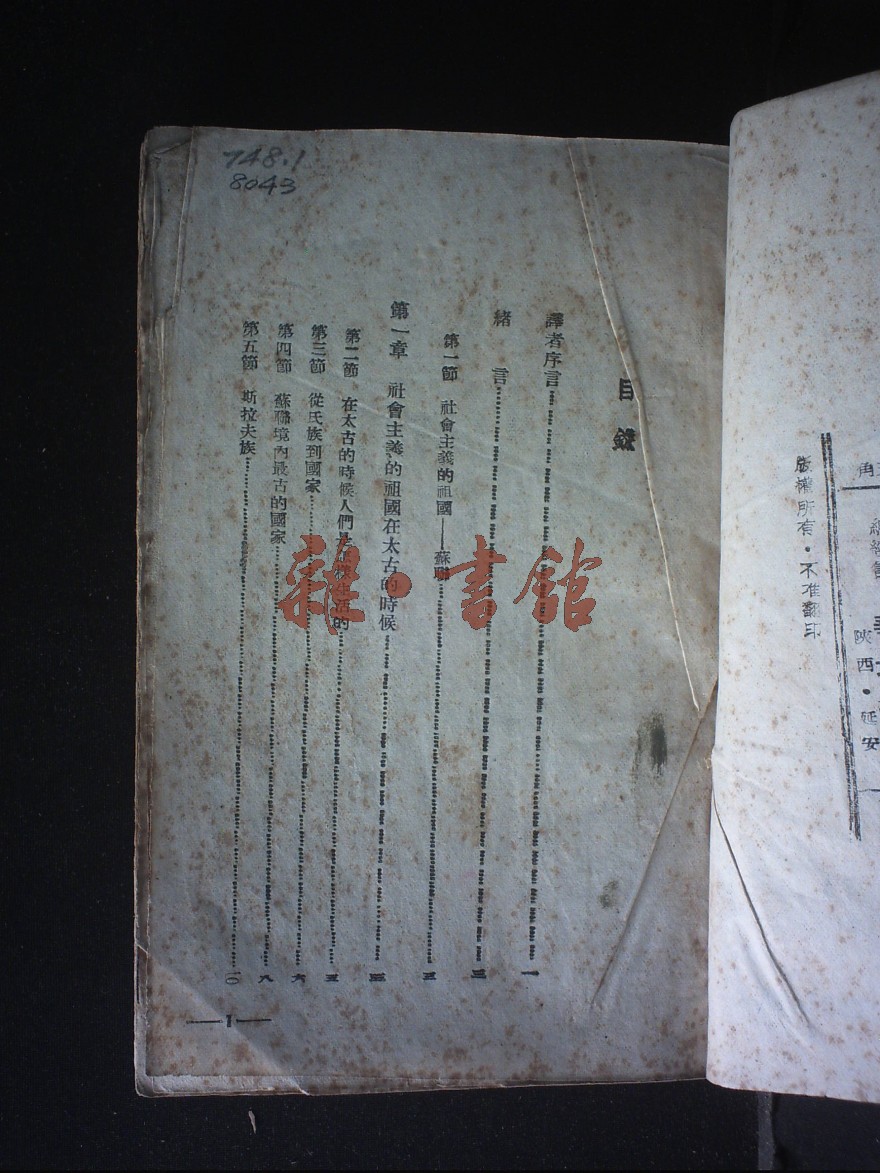 748.1
8043
目錄
譯者序言 一
緒言 三
第一節 社會主義的祖國——蘇聯 三
第一章 社會主義的祖國在太古的時候
第二節 在太古的時候人們是怎樣生活的 五
第三節 從氏族到國家 六
第四節 蘇聯境內最古的國家 八
第五節 斯拉夫族 一〇
—1—
版權所有・不准翻印
陝西・延安
雜・書館